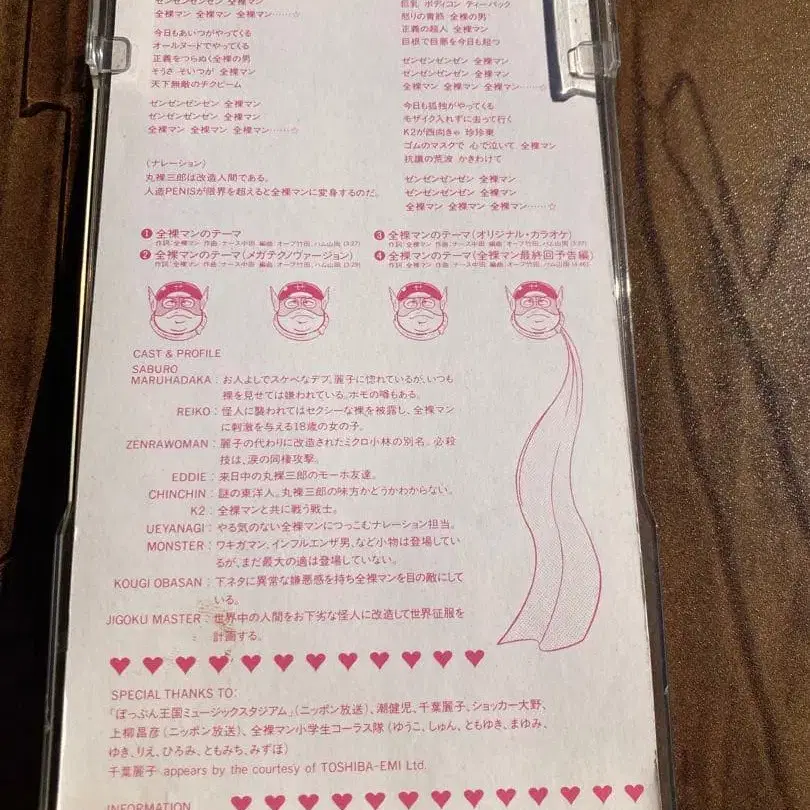 ゼンゼンゼンゼン 全裸マン
全裸マン 全裸マン 全裸マン……☆
今日もあいつがやってくる
オールヌードでやってくる
正義をつらぬく全裸の男
そうさ そいつが 全裸マン
天下無敵のチクビーム
ゼンゼンゼンゼン 全裸マン
ゼンゼンゼンゼン 全裸マン
全裸マン 全裸マン 全裸マン……☆
(ナレーション)
丸裸三郎は改造人間である。
人造PENISが限界を超えると全裸マンに変身するのだ。
巨乳 ボディコン ティーバック
怒りの青筋 全裸の男
正義の超人 全裸マン
目根で目悪を今日も超つ
ゼンゼンゼンゼン 全裸マン
ゼンゼンゼンゼン 全裸マン
全裸マン 全裸マン 全裸マン……☆
今日も孤独がやってくる
モザイク入れずに去って行く
K2が西向きゃ 珍珍東
ゴムのマスクで 心で泣いて 全裸マン
抗議の荒波 かきわけて
ゼンゼンゼンゼン 全裸マン
ゼンゼンゼンゼン 全裸マン
全裸マン 全裸マン 全裸マン……☆
❶ 全裸マンのテーマ
作詞:全裸マン 作曲:ナース中田 編曲:オーブ竹田、ハム山岡 (3:27)
❷ 全裸マンのテーマ(メガテクノヴァージョン)
作詞:全裸マン 作曲:ナース中田 編曲:オーブ竹田、ハム山岡 (3:29)
❸ 全裸マンのテーマ(オリジナル・カラオケ)
作詞:全裸マン 作曲:ナース中田 編曲:オーブ竹田、ハム山岡 (3:27)
❹ 全裸マンのテーマ(全裸マン最終回予告編)
作詞:全裸マン 作曲:ナース中田 編曲:オーブ竹田、ハム山岡 (4:46)
CAST & PROFILE
SABURO
MARUHADAKA : お人よしでスケベなデブ。麗子に惚れているが、いつも
裸を見せては嫌われている。ホモの噂もある。
REIKO : 怪人に襲われてはセクシーな裸を披露し、全裸マン
に刺激を与える18歳の女の子。
ZENRAWOMAN : 麗子の代わりに改造されたミクロ小林の別名。必殺
技は、涙の同棲攻撃。
EDDIE : 来日中の丸裸三郎のモーホ友達。
CHINCHIN : 謎の東洋人。丸裸三郎の味方かどうかわからない。
K2 : 全裸マンと共に戦う戦士。
UEYANAGI : やる気のない全裸マンにつっこむナレーション担当。
MONSTER : ワキガマン、インフルエンザ男、など小物は登場してい
るが、まだ最大の適は登場していない。
KOUGI OBASAN : 下ネタに異常な嫌悪感を持ち全裸マンを目の敵にして
いる。
JIGOKU MASTER : 世界中の人間をお下劣な怪人に改造して世界征服を
計画する。
SPECIAL THANKS TO:
「ぽっぷん王国ミュージックスタジアム」(ニッポン放送)、潮健児、千葉麗子、ショッカー大野、
上柳昌彦(ニッポン放送)、全裸マン小学生コーラス隊(ゆうこ、しゅん、ともゆき、まゆみ、
ゆき、りえ、ひろみ、ともみち、みずほ)
千葉麗子 appears by the courtesy of TOSHIBA-EMI Ltd.
INFORMATION